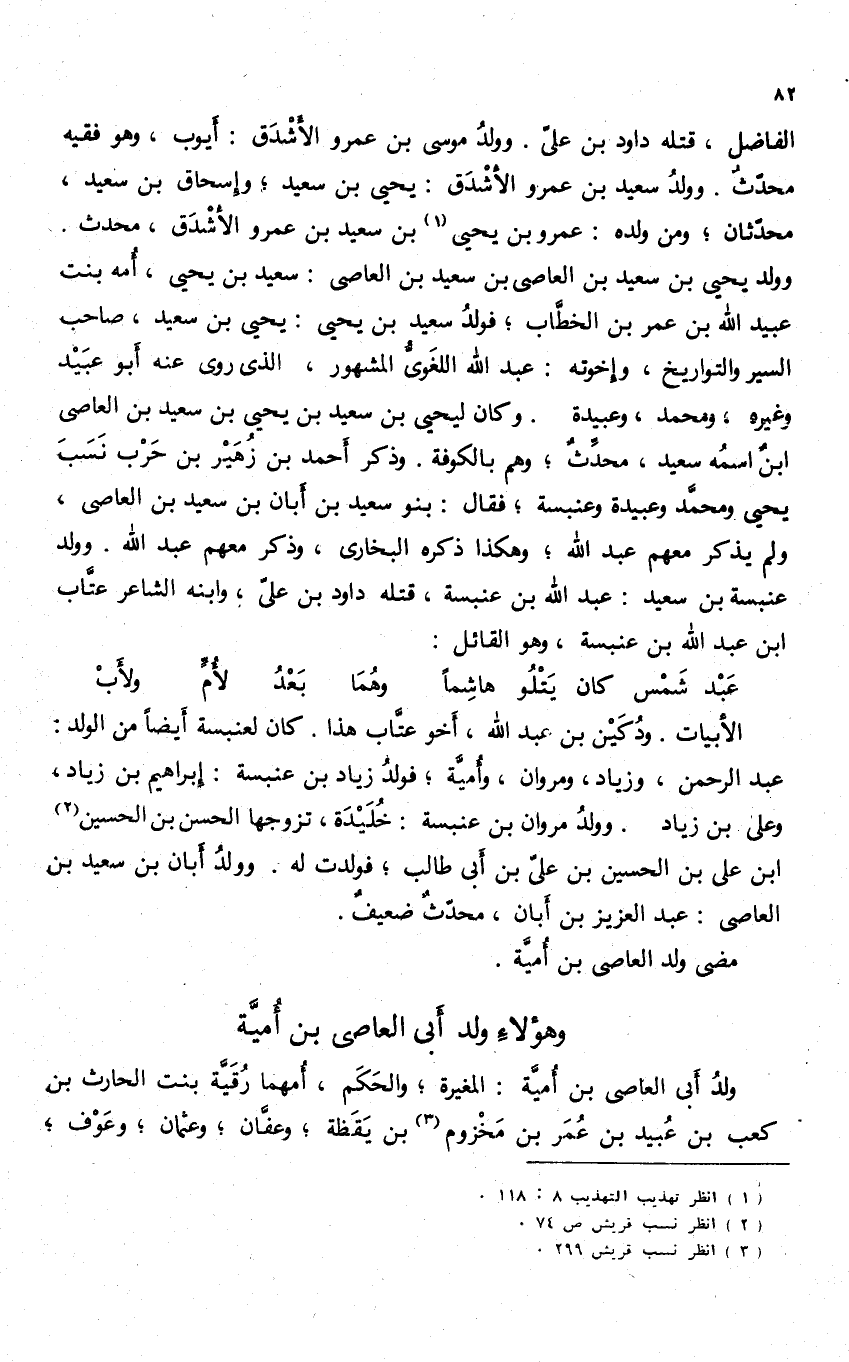 ٨٢
الفاضل ، قتله داود بن علىّ . وولدُ موسى بن عمرو الأَشْدَق : أَيوب ، وهو فقيه
محدّثٌ . وولدُ سعيد بن عمرو الأَشْدَق : يحيى بن سعيد ؛ وإسحاق بن سعيد ،
محدّثان ؛ ومن ولده : عمرو بن يحيى (١) بن سعيد بن عمرو الأَشْدَق ، محدث .
وولد يحيى بن سعيد بن العاصى بن سعيد بن العاصى : سعيد بن يحيى ، أُمه بنت
عبيد الله بن عمر بن الخطَّاب ؛ فولدُ سعيد بن يحيى : يحيى بن سعيد ، صاحب
السير والتواريخ ، وإخوته : عبد الله اللغوىُّ المشهور ، الذى روى عنه أَبو عبَيْد
وغيره ؛ ومحمد ، وعبيدة . وكان ليحيى بن سعيد بن يحيى بن سعيد بن العاصى
ابنٌ اسمُه سعيد ، محدِّثٌ ؛ وهم بالكوفة . وذكر أَحمد بن زُهَيْر بن حَرْب نَسَبَ
يحيى ومحمَّد وعبيدة وعنبسة ؛ فقال : بنو سعيد بن أَبان بن سعيد بن العاصى ،
ولم يذكر معهم عبد الله ؛ وهكذا ذكره البخارى ، وذكر معهم عبد الله . وولد
عنبسة بن سعيد : عبد الله بن عنبسة ، قتله داود بن علىّ ؛ وابنه الشاعر عتَّاب
ابن عبد الله بن عنبسة ، وهو القائل :
عَبْد شَمْس كان يَتْلُو هاشِماً وهُمَا بَعْدُ لأُمٍّ ولأَبْ
الأبيات . ودُكَيْن بن عبد الله ، أَخو عتَّاب هذا . كان لعنبسة أَيضاً من الولد :
عبد الرحمن ، وزياد ، ومروان ، وأُميَّة ؛ فولدُ زياد بن عنبسة : إبراهيم بن زياد ،
وعلى بن زياد . وولدُ مروان بن عنبسة : خُلَيْدَة ، تزوجها الحسن بن الحسين (٢)
ابن على بن الحسين بن علىّ بن أَبى طالب ؛ فولدت له . وولدُ أَبان بن سعيد بن
العاصى : عبد العزيز بن أَبان ، محدّثٌ ضعيفٌ .
مضى ولد العاصى بن أُميَّة .
وهؤلاءِ ولد أَبى العاصى بن أُميَّة
ولدُ أَبى العاصى بن أُميَّة : المغيرة ؛ والحَكَم ، أُمهما رُقَيَّة بنت الحارث بن
كعب بن عُبيد بن عُمَر بن مَخْزوم (٣) بن يَقَظة ؛ وعفَّان ؛ وعثمان ؛ وعَوْف ؛
( ١ ) انظر تهذيب التهذيب ٨ : ١١٨ .
( ٢ ) انظر نسب قريش ص ٧٤ .
( ٣ ) انظر نسب قريش ٢٩٩ .